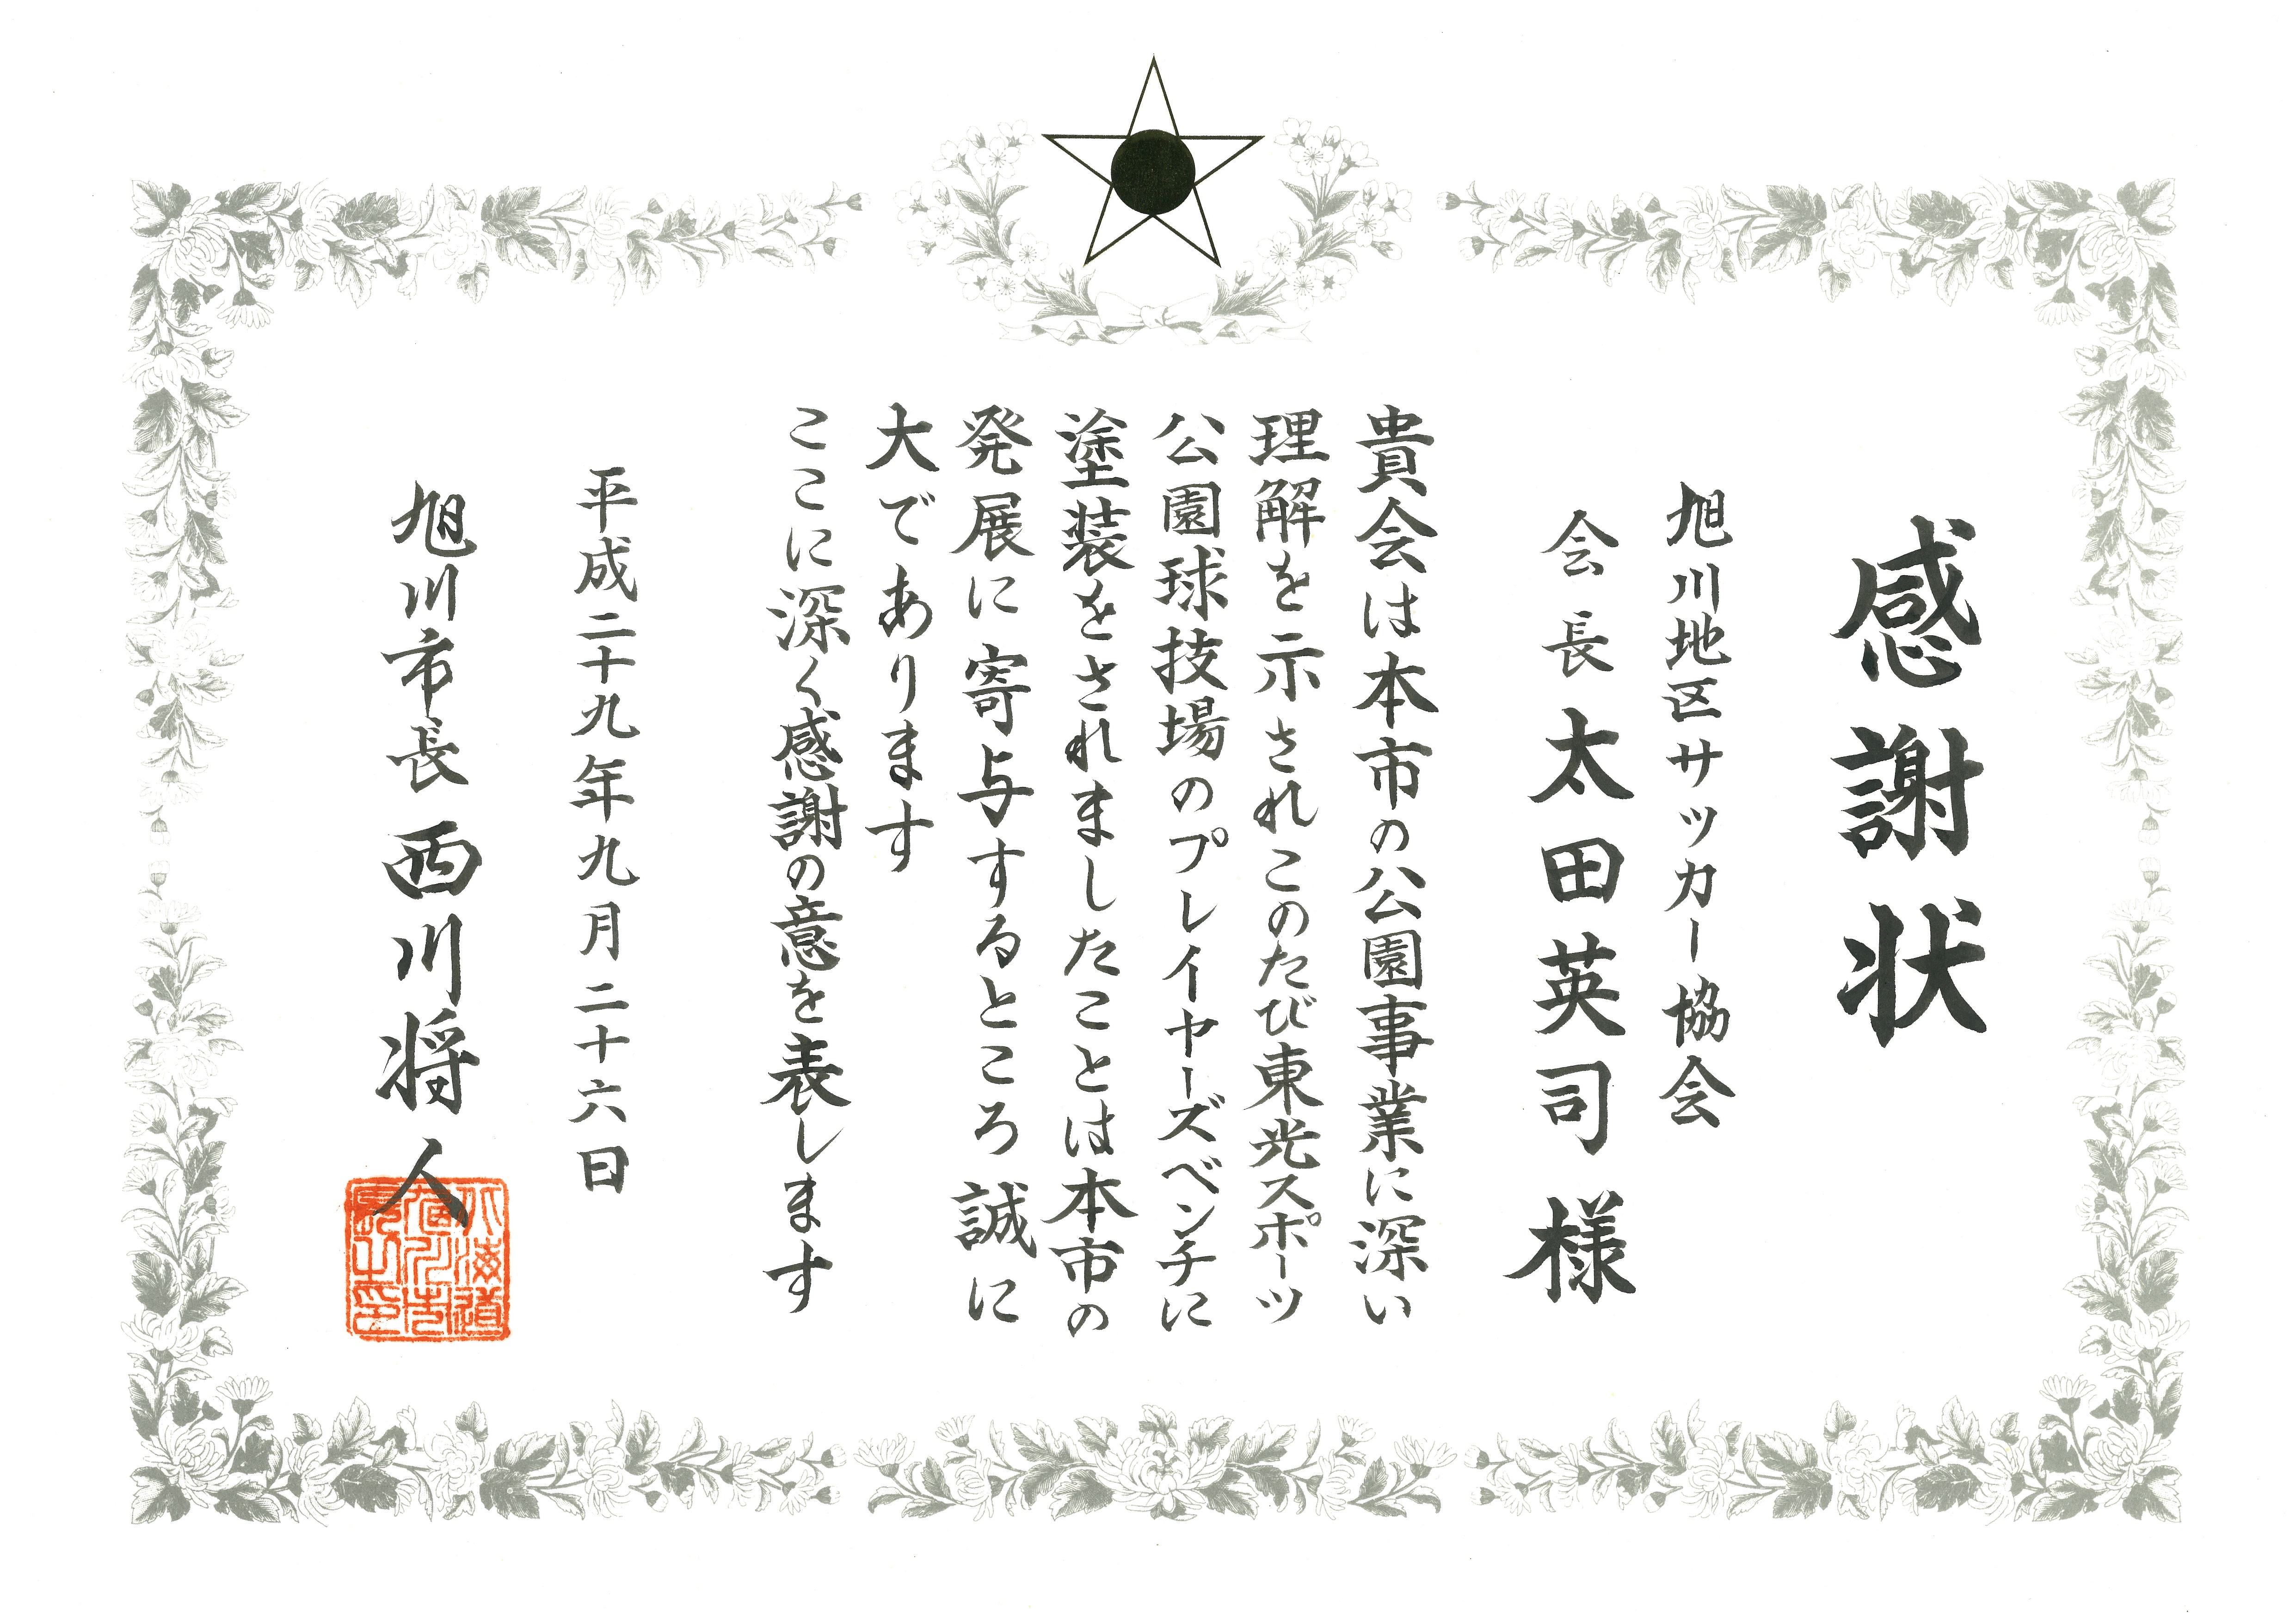 感謝状
旭川地区サッカー協会
会長 太田英司 様
貴会は本市の公園事業に深い
理解を示されこのたび東光スポーツ
公園球技場のプレイヤーズベンチに
塗装をされましたことは本市の
発展に寄与するところ誠に
大であります
ここに深く感謝の意を表します
平成二十九年九月二十六日
旭川市長 西川将人
北海道
旭川市
長之印